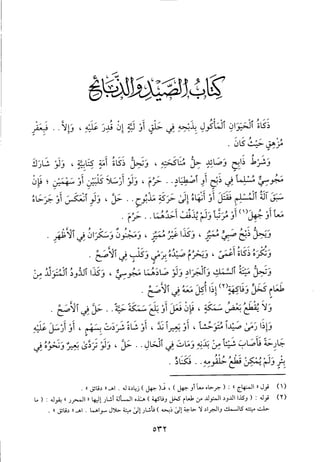 كتاب الصيد والذبائح
ذكاة الحيوان المأكول بذبحه في حلق أو لبة إن قدر عليه ، وإلا .. فبعقر
مزهق حيث كان .
وشرط ذابح وصائد حل مناكحته ، وتحل ذكاة أمة كتابية ، ولو شارك
مجوسي مسلما في ذبح أو اصطياد .. حرم ، ولو أرسلا كلبين أو سهمين ؛ فإن
سبق آلة المسلم فقتل أو أنهاه إلى حركة مذبوح .. حل ، ولو انعكس أو جرحاه
معا أو جهل (١) أو مرتبا ولم يذفف أحدهما .. حرم .
ويحل ذبح صبي مميز ، وكذا غير مميز ، ومجنون وسكران في الأظهر .
وتكره ذكاة أعمى ، ويحرم صيده برمي وكلب في الأصح .
وتحل ميتة السمك والجراد ولو صادهما مجوسي ، وكذا الدود المتولد من
طعام كخل وفاكهة (٢) إذا أكل معه في الأصح .
ولا يقطع بعض سمكة ، فإن فعل أو بلع سمكة حية .. حل في الأصح .
وإذا رمى صيدا متوحشا ، أو بعيرا ند ، أو شاة شردت بسهم ، أو أرسل عليه
جارحة فأصاب شيئا من بدنه ومات في الحال .. حل ، ولو تردى بعير ونحوه في
بئر ولم يمكن قطع حلقومه .. فكناد .
(١) قوله : ( انعكس أو جرحاه معا أو جهل ) ، ( جهل ) زيادة له . اهـ « دقائق » .
(٢) قوله : ( وكذا الدود المتولد من طعام كخل وفاكهة ) هذه المسألة أشار إليها « المحرر » بقوله : ( ما
٥٣٢